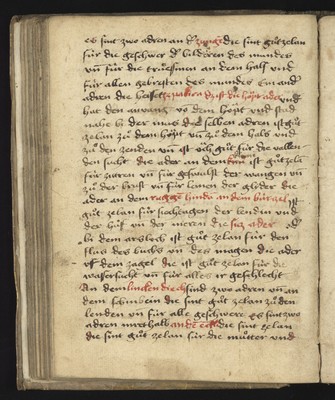 es sint zwo adren an d' zunge die sint gůt zelan
für die geschwer d' bilderen des mundes
vn̄ für die trüesinen an dem halss vnd
für allen gebresten des mundes ein and'
adren die heisset
hat den anvang vs dem höpt vnd stad
nahe bi der selben adren ist gůt
zelan zů dem höpt vn̄ zů dem hals vnd
zů den zenden vn̄ ist och gůt für die vallen
den sucht die ader an dem ist gůt zela
für zaren vn̄ für geswulst der wangen vn̄
zů der brust vn̄ für lemen der glider die
ader an dem rugge hinda an dem bürzel ist
gůt zelan für siechtagen der lendin vnd
der hüf vn̄ der nieren die ader
bi dem arsloch ist gůt zelan für den
fluss des buches vn̄ des magen die ader
vf dem zagel die ist gůt zelan für die
wassersucht vn̄ für alles ir geschlecht
An dem sind zwo adren vn̄ an
dem schinbein die sint gůt zelan zů den
lenden vn̄ für alle geschwere es sint zwo
adren inrthalb an die sint zelan
die sint gůt zelan für die můtter vnd